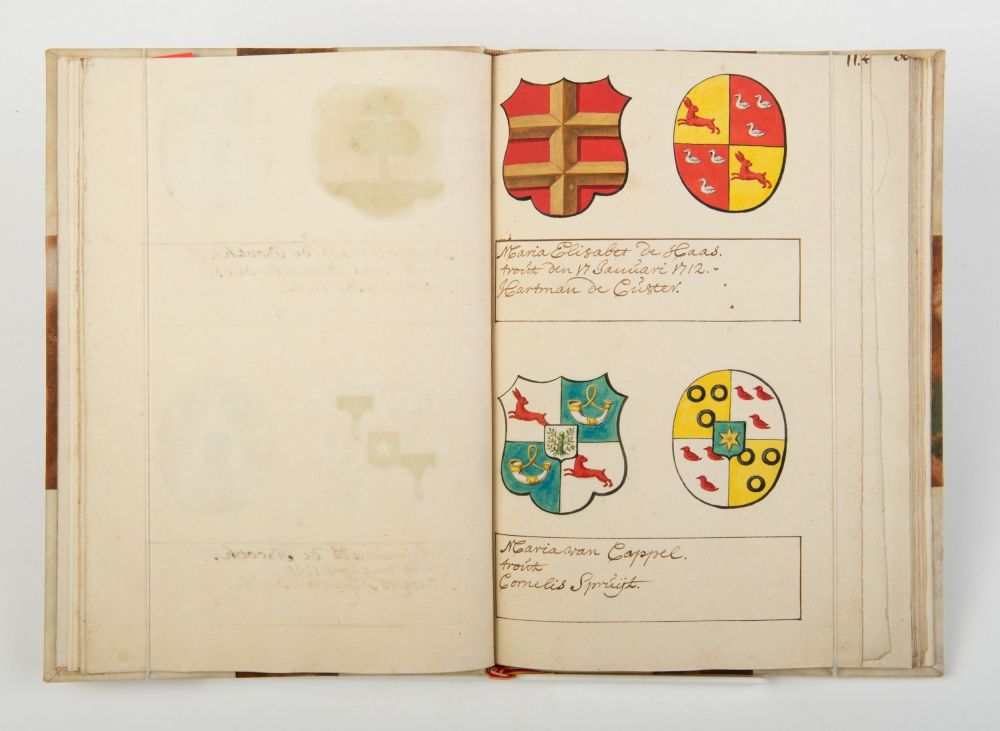 Maria Elisabet de Haas.
trout den 17 Januari 1712.
Hartman de Cúster.
Maria van Cappel.
troút
Cornelis Sprúijt.